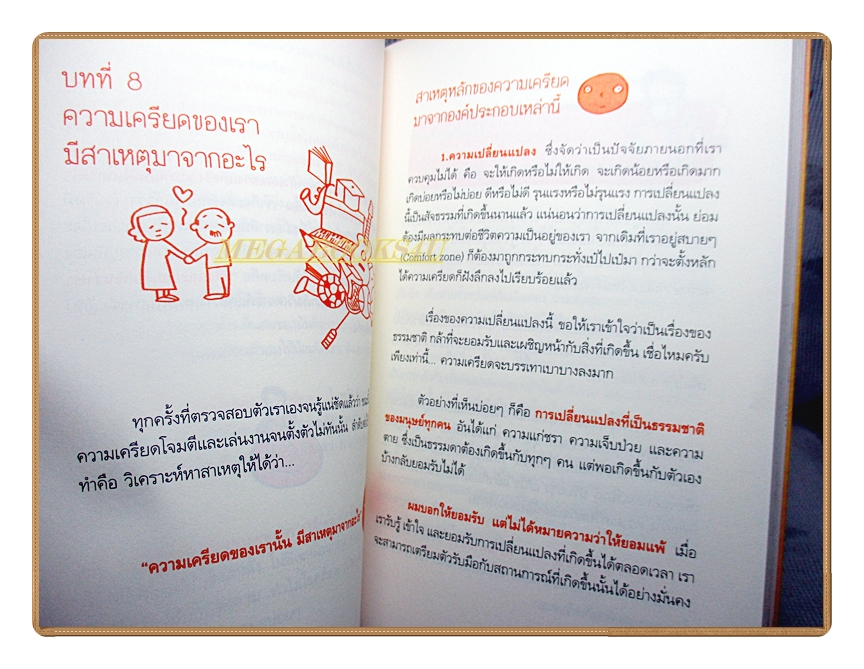 บทที่ 8
ความเครียดของเรา
มีสาเหตุมาจากอะไร
MEGABOOKS4U
ทุกครั้งที่ตรวจสอบตัวเราเองจนรู้แน่ชัดแล้วว่า
ความเครียดโจมตีและเล่นงานจนตั้งตัวไม่ทันนั้น
ทำคือ วิเคราะห์หาสาเหตุให้ได้ว่า...
“ความเครียดของเรานั้น มีสาเหตุมาจากอะไร
สาเหตุหลักของความเครียด
มาจากองค์ประกอบเหล่านี้
1.ความเปลี่ยนแปลง ซึ่งจัดว่าเป็นปัจจัยภายนอกที่เรา
ควบคุมไม่ได้ คือ จะให้เกิดหรือไม่ให้เกิด จะเกิดน้อยหรือเกิดมาก
เกิดบ่อยหรือไม่บ่อย ดีหรือไม่ดี รุนแรงหรือไม่รุนแรง การเปลี่ยนแปลง
นี้เป็นสัจธรรมที่เกิดขึ้นนานแล้ว แน่นอนว่าการเปลี่ยนแปลงนั้น ย่อม
ต้องมีผลกระทบต่อชีวิตความเป็นอยู่ของเรา จากเดิมที่เราอยู่สบายๆ
(Comfort zone) ก็ต้องมาถูกกระทบกระทั่งเป๋ไปเป๋มา กว่าจะตั้งหลัก
ได้ความเครียดก็ฝังลึกลงไปเรียบร้อยแล้ว
เรื่องของความเปลี่ยนแปลงนี้ ขอให้เราเข้าใจว่าเป็นเรื่องของ
ธรรมชาติ กล้าที่จะยอมรับและเผชิญหน้ากับสิ่งที่เกิดขึ้น เชื่อไหมครับ
เพียงเท่านี้... ความเครียดจะบรรเทาเบาบางลงมาก
ตัวอย่างที่เห็นบ่อยๆ ก็คือ การเปลี่ยนแปลงที่เป็นธรรมชาติ
ของมนุษย์ทุกคน อันได้แก่ ความแก่ชรา ความเจ็บป่วย และความ
ตาย ซึ่งเป็นธรรมดาต้องเกิดขึ้นกับทุกๆ คน แต่พอเกิดขึ้นกับตัวเอง
บ้างกลับยอมรับไม่ได้
ผมบอกให้ยอมรับ แต่ไม่ได้หมายความว่าให้ยอมแพ้ เมื่อ
เรารับรู้ เข้าใจ และยอมรับการเปลี่ยนแปลงที่เกิดขึ้นได้ตลอดเวลา เรา
จะสามารถเตรียมตัวรับมือกับสถานการณ์ที่เกิดขึ้นนั้นได้อย่างมั่นคง